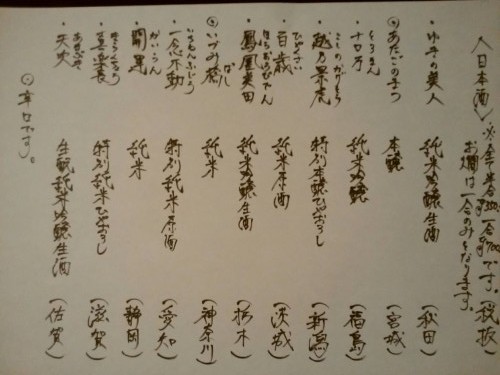 〈日本酒〉 ※全て半合 一合700です。(税抜)
お燗は一合のみとなります。
・ゆきの美人 純米吟醸生酒 (秋田)
⊙あたごのまつ 本醸 (宮城)
とろまん
・十ロ万 純米吟醸 (福島)
こしのかげとら
・越乃景虎 特別本醸ひやおろし (新潟)
ひゃくさい
・百歳 純米原酒 (茨城)
ほうおうびでん
・鳳凰美田 純米吟醸生酒 (栃木)
⊙いづみ橋 純米 (神奈川)
いちねんふどう
・一念不動 特別純米原酒 (愛知)
かいうん
・開運 純米 (静岡)
きらくちょう
・喜楽長 特別純米ひやおろし (滋賀)
あまぶき
・天吹 生酛純米吟醸生酒 (佐賀)
⊙辛口です。